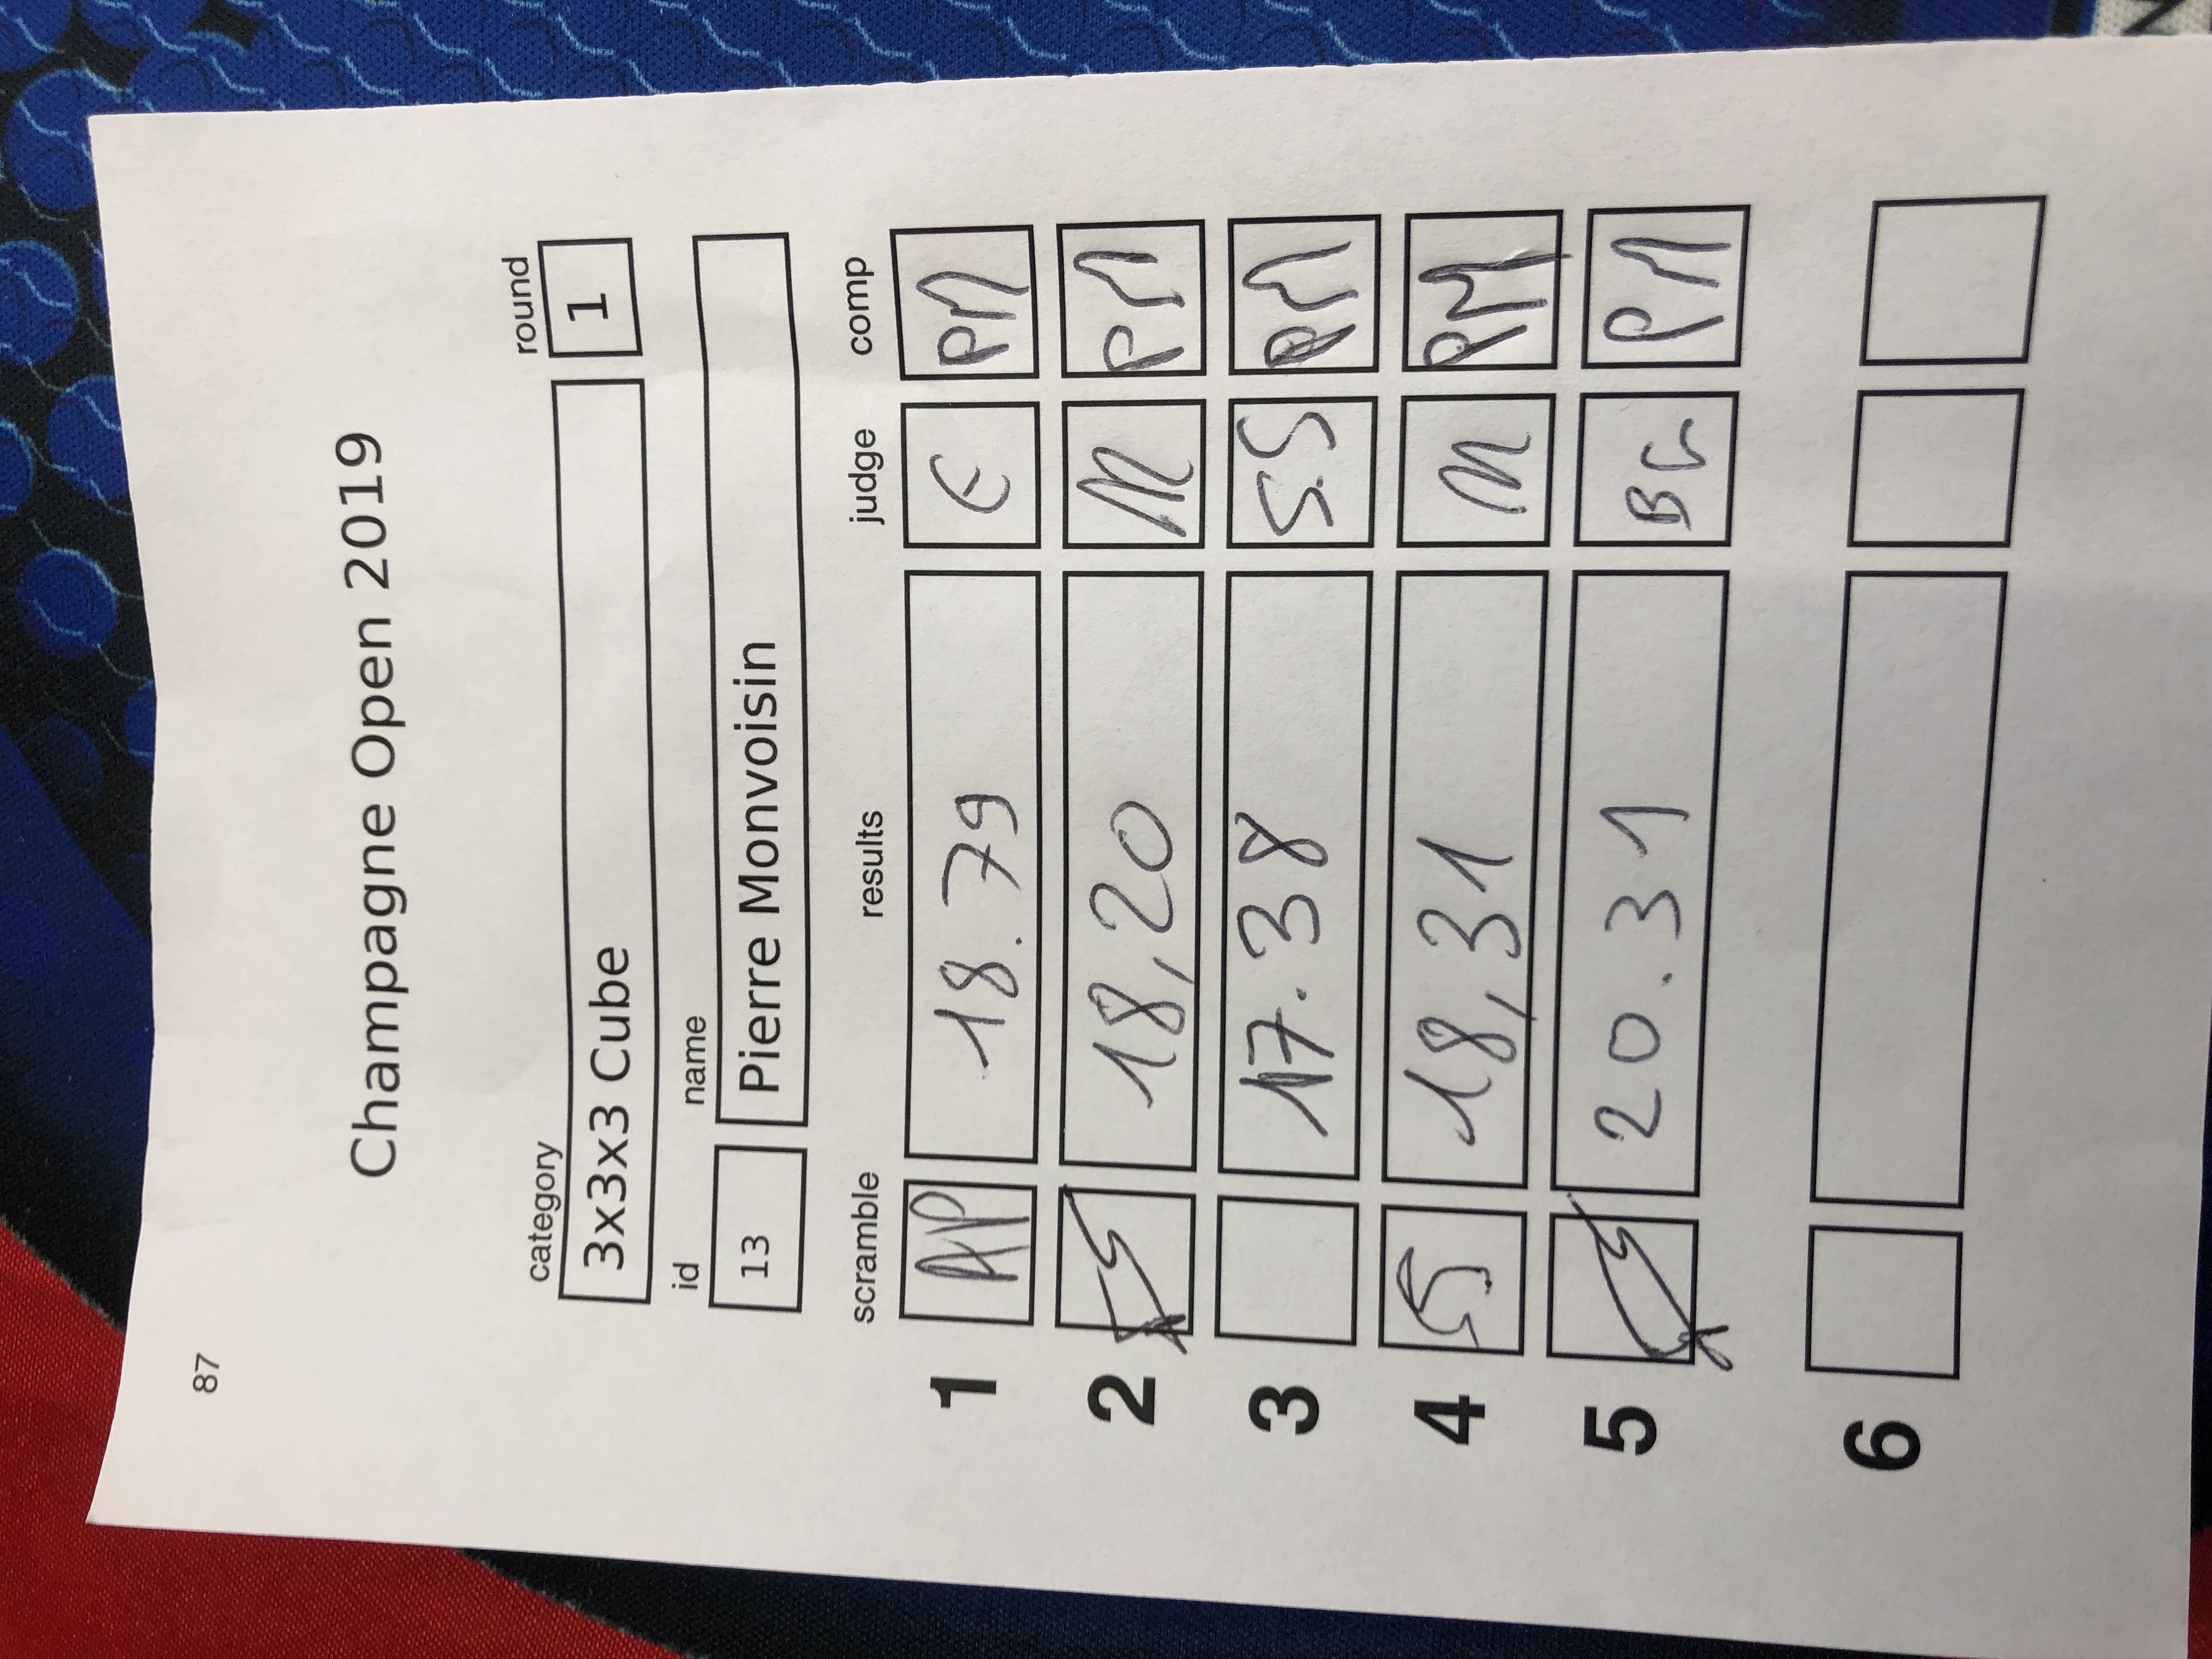 87
Champagne Open 2019
category round
3x3x3 Cube 1
id name
13 Pierre Monvoisin
scramble results judge comp
1 AP 18.79 E PM
2 18,20 M PM
3 17.38 S.S PM
4 18,31 M PM
5 20.31 BG PM
6